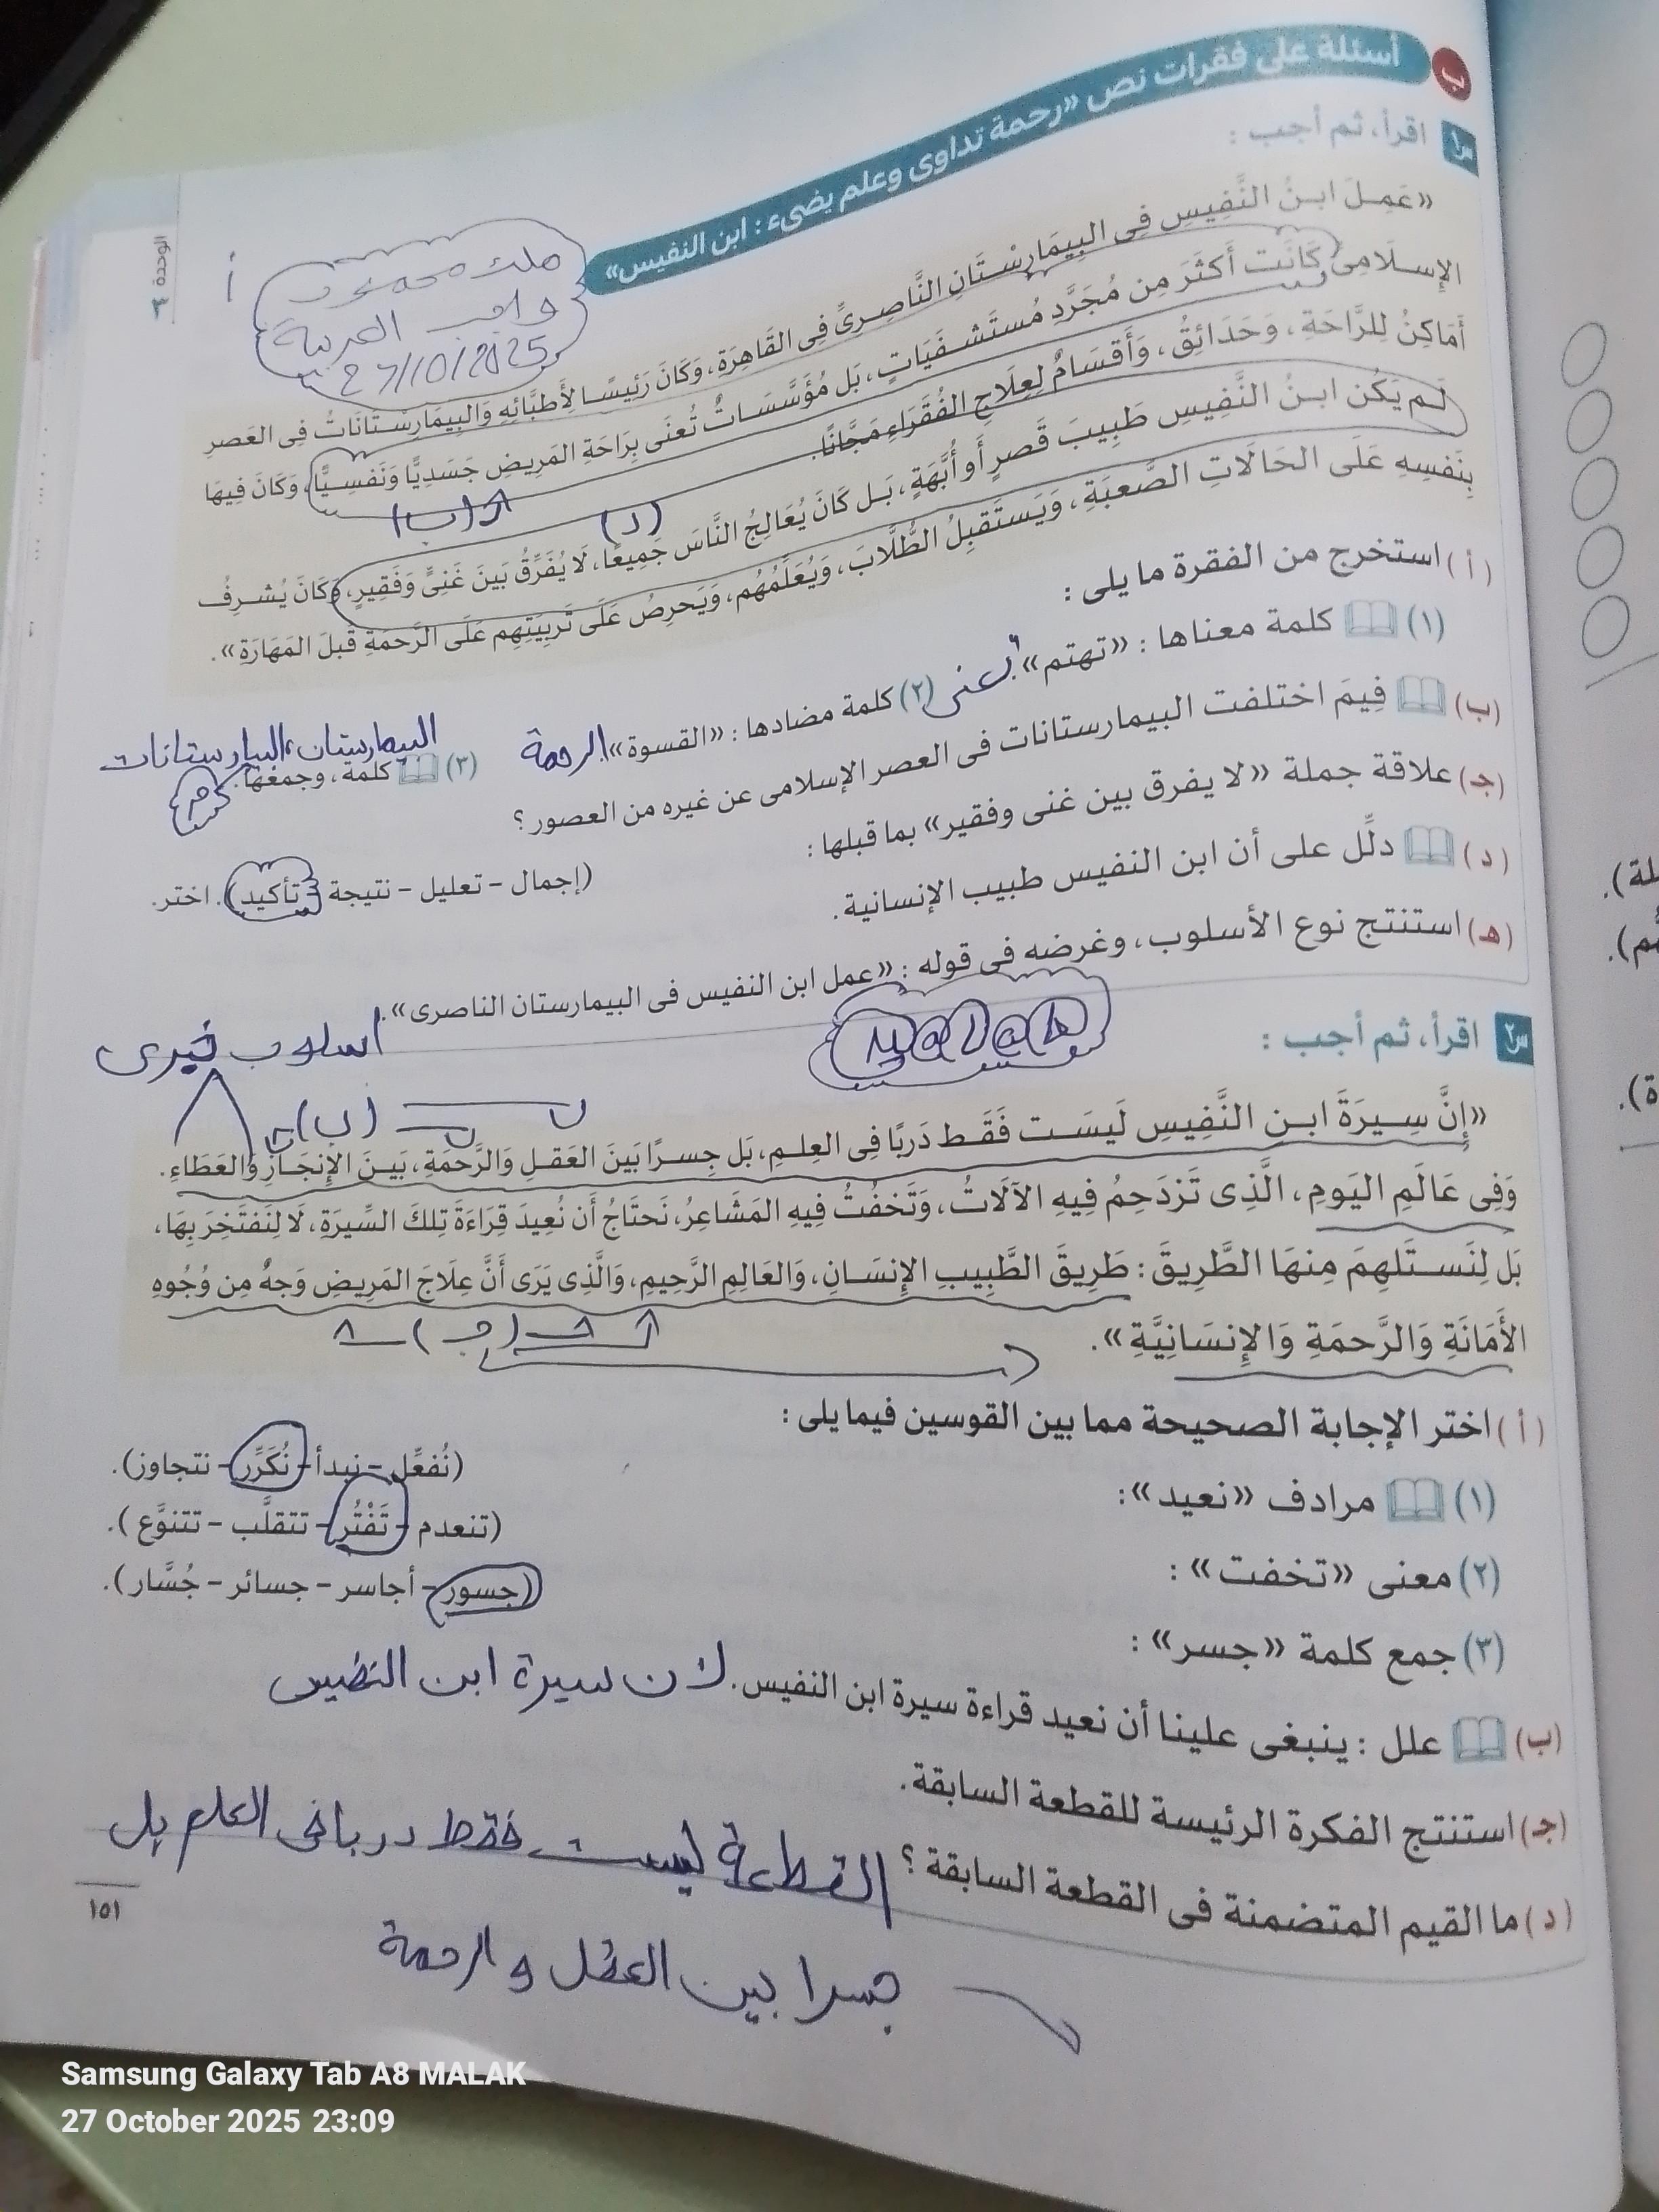 ب أسئلة على فقرات نص «رحمة تداوى وعلم يضىء : ابن النفيس»
س١ اقرأ، ثم أجب :
الوحدة ٣
ملك محمود
واجب العربية
27/10/2025
«عَمِلَ ابنُ النَّفِيسِ فِى البِيمَارِسْتَانِ النَّاصِرِىِّ فِى القَاهِرَةِ، وَكَانَ رَئِيسًا لِأَطِبَّائِهِ وَالبِيمَارِسْتَانَاتُ فِى العَصرِ
الإِسلَامِىِّ كَانَت أَكثَرَ مِن مُجَرَّدِ مُستَشفَيَاتٍ، بَل مُؤَسَّسَاتٌ تُعنَى بِرَاحَةِ المَرِيضِ جَسَدِيًّا وَنَفسِيًّا، وَكَانَ فِيهَا
أَمَاكِنُ لِلرَّاحَةِ، وَحَدَائِقُ، وَأَقسَامٌ لِعِلَاجِ الفُقَرَاءِ مَجَّانًا.
لَم يَكُن ابنُ النَّفِيسِ طَبِيبَ قَصرٍ أَو أُبَّهَةٍ، بَل كَانَ يُعَالِجُ النَّاسَ جَمِيعًا، لَا يُفَرِّقُ بَينَ غَنِىٍّ وَفَقِيرٍ، وَكَانَ يُشرِفُ
بِنَفسِهِ عَلَى الحَالَاتِ الصَّعبَةِ، وَيَستَقبِلُ الطُّلَّابَ، وَيُعَلِّمُهُم، وَيَحرِصُ عَلَى تَربِيَتِهِم عَلَى الرَّحمَةِ قَبلَ المَهَارَةِ».
(ب)
(د)
(أ) استخرج من الفقرة ما يلى :
(١) كلمة معناها : «تهتم» تعنى (٢) كلمة مضادها : «القسوة» الرحمة (٣) كلمة، وجمعها.
البيمارستان، البيمارستانات
(ب) فِيمَ اختلفت البيمارستانات فى العصر الإسلامى عن غيره من العصور؟
(جـ) علاقة جملة «لا يفرق بين غنى وفقير» بما قبلها : (إجمال – تعليل – نتيجة – تأكيد). اختر.
(د) دلِّل على أن ابن النفيس طبيب الإنسانية.
(هـ) استنتج نوع الأسلوب، وغرضه فى قوله : «عمل ابن النفيس فى البيمارستان الناصرى».
اسلوب خبرى
Malak
س٢ اقرأ، ثم أجب :
(ب)
«إِنَّ سِيرَةَ ابنِ النَّفِيسِ لَيسَت فَقَط دَربًا فِى العِلمِ، بَل جِسرًا بَينَ العَقلِ وَالرَّحمَةِ، بَينَ الإِنجَازِ وَالعَطَاءِ.
وَفِى عَالَمِ اليَومِ، الَّذِى تَزدَحِمُ فِيهِ الآلَاتُ، وَتَخفُتُ فِيهِ المَشَاعِرُ، نَحتَاجُ أَن نُعِيدَ قِرَاءَةَ تِلكَ السِّيرَةِ، لَا لِنَفتَخِرَ بِهَا،
بَل لِنَستَلهِمَ مِنهَا الطَّرِيقَ : طَرِيقَ الطَّبِيبِ الإِنسَانِ، وَالعَالِمِ الرَّحِيمِ، وَالَّذِى يَرَى أَنَّ عِلَاجَ المَرِيضِ وَجهٌ مِن وُجُوهِ
الأَمَانَةِ وَالرَّحمَةِ وَالإِنسَانِيَّةِ».
(جـ)
(أ) اختر الإجابة الصحيحة مما بين القوسين فيما يلى :
(١) مرادف «نعيد»: (نُفعِّل – نبدأ – نُكَرِّر – نتجاوز).
(٢) معنى «تخفت» : (تنعدم – تَفْتُر – تتقلَّب – تتنوَّع).
(٣) جمع كلمة «جسر» : (جسور – أجاسر – جسائر – جُسَّار).
(ب) علل : ينبغى علينا أن نعيد قراءة سيرة ابن النفيس. لان سيرة ابن النفيس
(جـ) استنتج الفكرة الرئيسة للقطعة السابقة.
(د) ما القيم المتضمنة فى القطعة السابقة؟
القطعة ليست فقط دربا فى العلم بل
جسرا بين العقل والرحمة
١٥١
Samsung Galaxy Tab A8 MALAK
27 October 2025 23:09